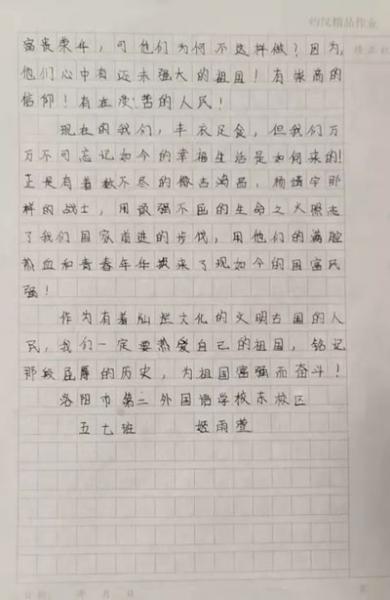 富贵荣华，可他们为何不这样做？因为，
他们心中有还未强大的祖国！有崇高的
信仰！有在受苦的人民！
现在的我们，丰衣足食，但我们万
万不可忘记如今的幸福生活是如何来的！
正是有着数不尽的像吉鸿昌，杨靖宇那
样的战士，用顽强不屈的生命之火照亮
了我们国家前进的步伐，用他们的满腔
热血和青春年华换来了现如今的国富民
强！
作为有着灿烂文化的文明古国的人
民，我们一定要热爱自己的祖国，铭记
那段屈辱的历史，为祖国富强而奋斗！
洛阳市第二外国语学校东校区
五七班 姬雨萱